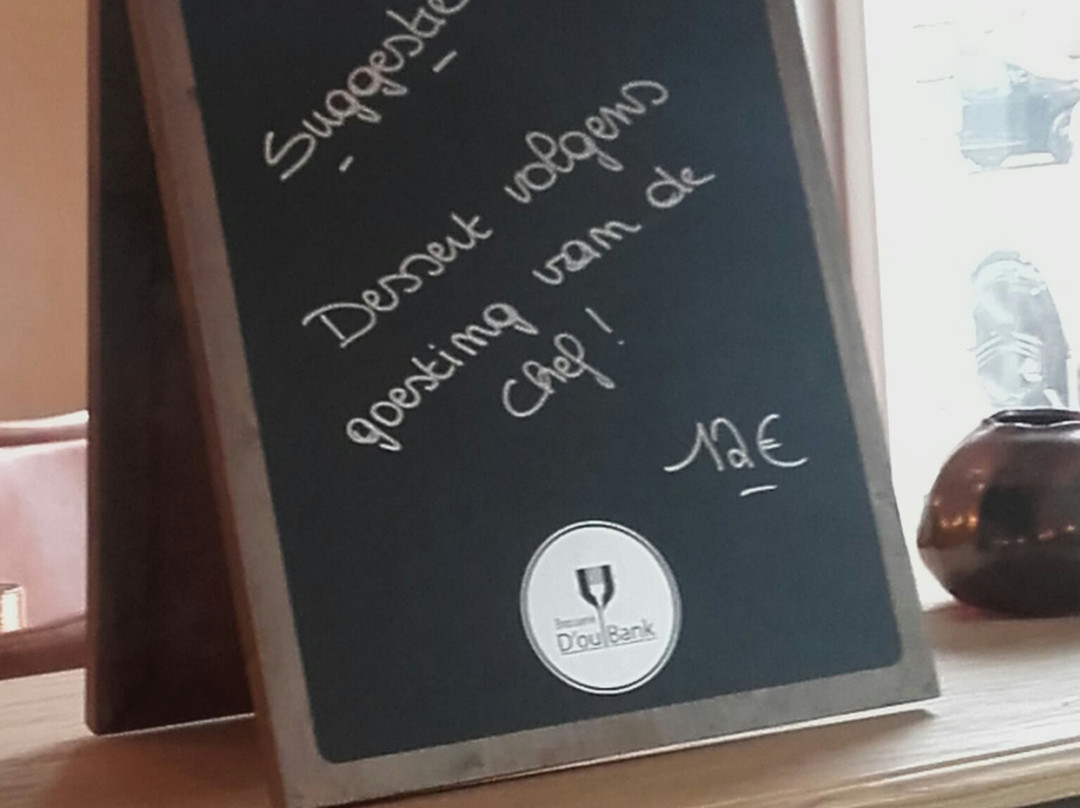 Suggestie
Dessert volgens
goesting van de
chef!
12€
Brasserie
D'ou Bank